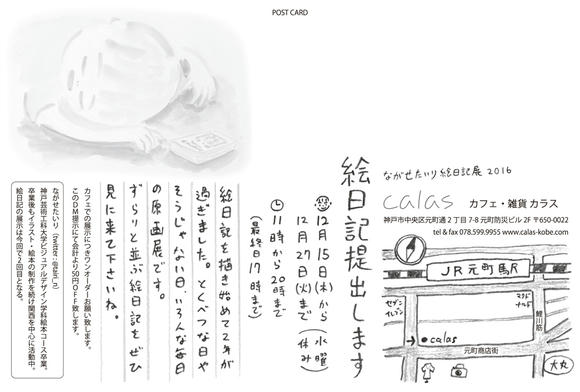 POST CARD
ながせたいり 絵日記展 2016
calas カフェ・雑貨 カラス
神戸市中央区元町通 2 丁目 7-8 元町防災ビル 2F 〒650-0022
tel & fax 078.599.9955 www.calas-kobe.com
絵日記提出します
12月15日(木)から
12月27日(火)まで
(水曜休み)
11時から20時まで
(最終日17時まで)
絵日記を描き始めて2年が
過ぎました。とくべつな日や
そうじゃない日、いろんな毎日
の原画展です。
ずらりと並ぶ絵日記をぜひ
見に来て下さいね。
カフェでの展示につきワンオーダーお願い致します。
このDM提示にて会計より50円OFF致します。
ながせたいり (Twitter:
神戸芸術工科大学ビジュアルデザイン学科絵本コース卒業。
卒業後もイラスト・絵本の制作を続け関西を中心に活動中。
絵日記の展示は今回で2回目となる。
JR元町駅
セブンイレブン
マクドナルド
鯉川筋
calas
元町商店街
大丸